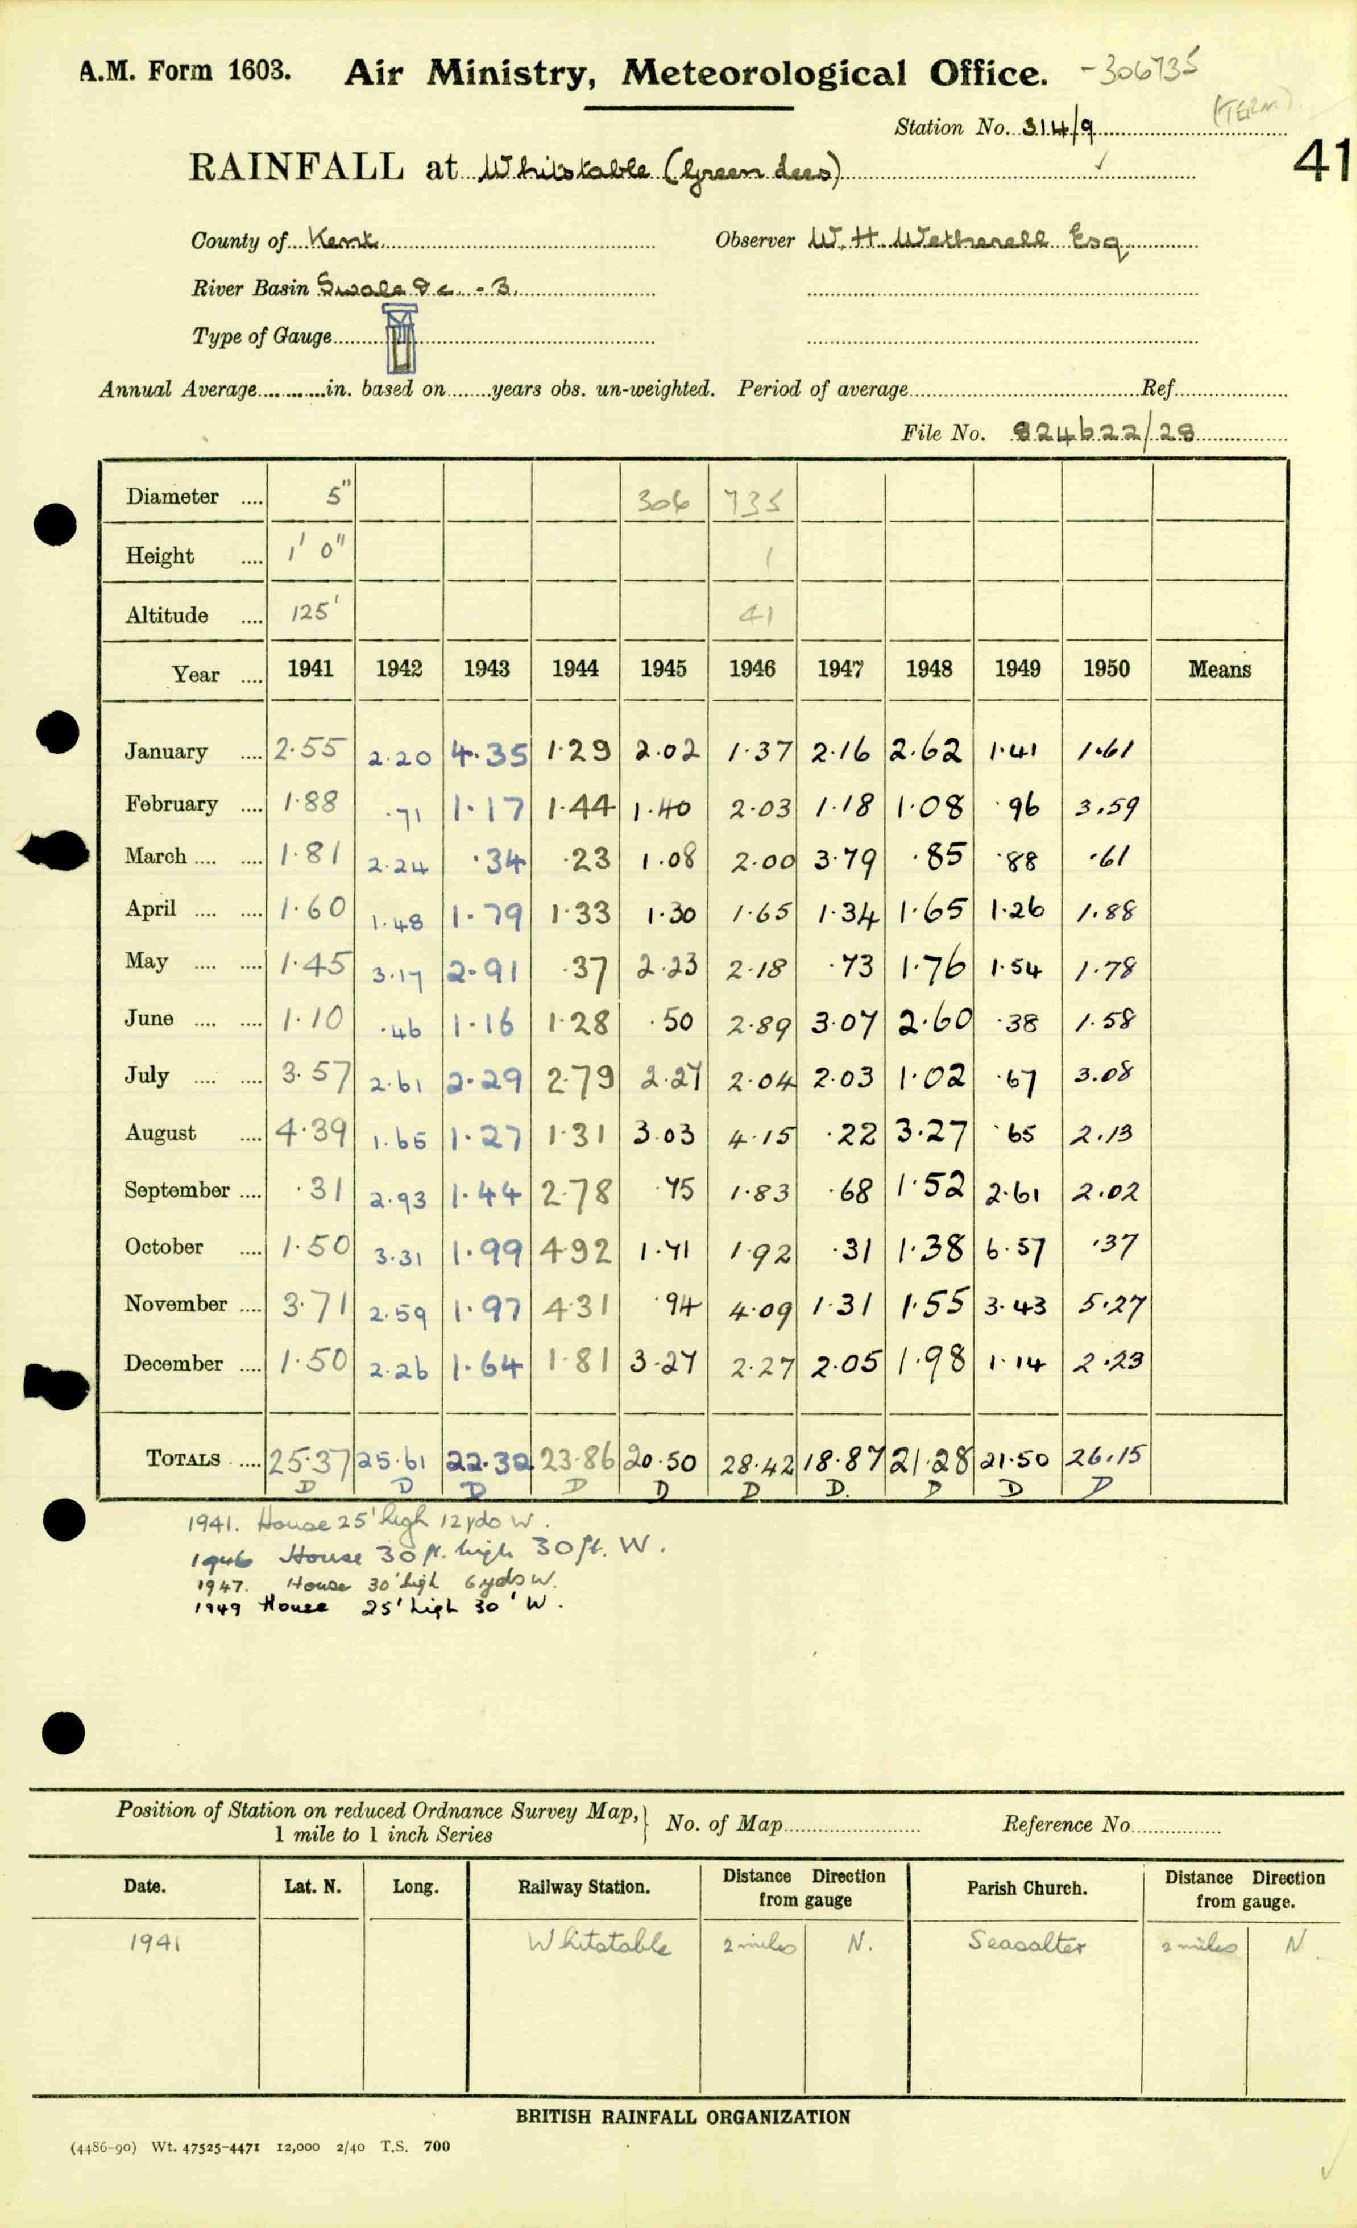 A.M. Form 1603. Air Ministry, Meteorological Office. -306735
(TERM)
Station No. 314/9
41
RAINFALL at Whitstable (Green Lees)
County of Kent Observer W. H. Wetherell Esq
River Basin Swale &c. - 3.
Type of Gauge
Annual Average in. based on years obs. un-weighted. Period of average Ref.
File No. 824622/28
Diameter .... 5" 306 735
Height .... 1' 0" 1
Altitude .... 125' 41
Year .... 1941 1942 1943 1944 1945 1946 1947 1948 1949 1950 Means
January .... 2.55 2.20 4.35 1.29 2.02 1.37 2.16 2.62 1.41 1.61
February .... 1.88 .71 1.17 1.44 1.40 2.03 1.18 1.08 .96 3.59
March .... .... 1.81 2.24 .34 .23 1.08 2.00 3.79 .85 .88 .61
April .... .... 1.60 1.48 1.79 1.33 1.30 1.65 1.34 1.65 1.26 1.88
May .... .... 1.45 3.17 2.91 .37 2.23 2.18 .73 1.76 1.54 1.78
June .... .... 1.10 .46 1.16 1.28 .50 2.89 3.07 2.60 .38 1.58
July .... .... 3.57 2.61 2.29 2.79 2.27 2.04 2.03 1.02 .67 3.08
August .... 4.39 1.65 1.27 1.31 3.03 4.15 .22 3.27 .65 2.13
September .... .31 2.93 1.44 2.78 .75 1.83 .68 1.52 2.61 2.02
October .... 1.50 3.31 1.99 4.92 1.71 1.92 .31 1.38 6.57 .37
November .... 3.71 2.59 1.97 4.31 .94 4.09 1.31 1.55 3.43 5.27
December .... 1.50 2.26 1.64 1.81 3.27 2.27 2.05 1.98 1.14 2.23
TOTALS .... 25.37 25.61 22.32 23.86 20.50 28.42 18.87 21.28 21.50 26.15
D D D D D D D. D D D
1941. House 25' high 12 yds W.
1946 House 30 ft. high 30 ft. W.
1947. House 30' high 6 yds W.
1949 House 25' high 30' W.
Position of Station on reduced Ordnance Survey Map, 1 mile to 1 inch Series } No. of Map Reference No
Date. Lat. N. Long. Railway Station. Distance Direction from gauge Parish Church. Distance Direction from gauge.
1941 Whitstable 2 miles N. Seasalter 2 miles N
BRITISH RAINFALL ORGANIZATION
(4486-90) Wt. 47525-4471 12,000 2/40 T.S. 700